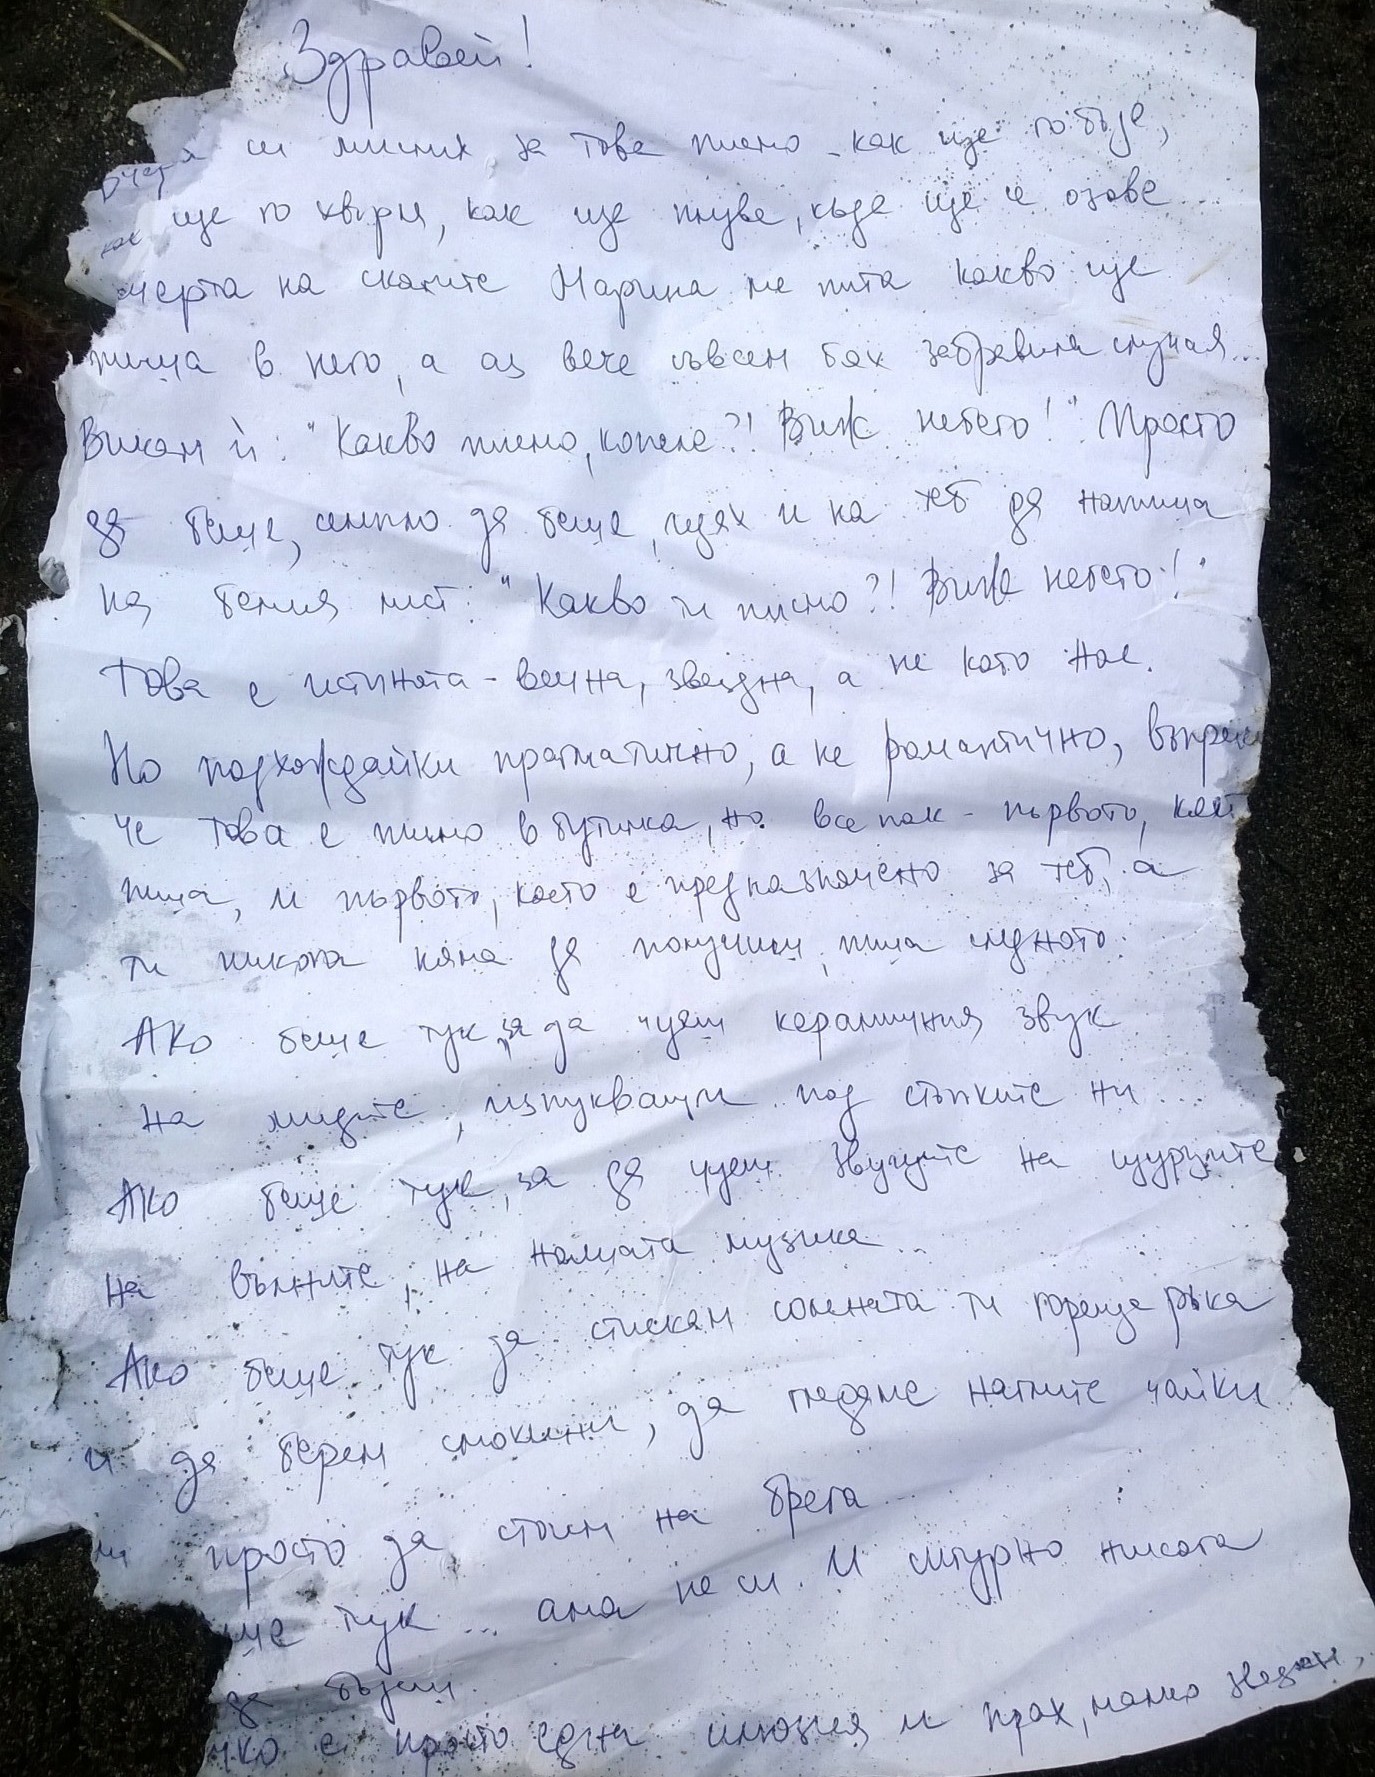 Здравей!
си мислих за това писмо - как ще го бъде,
как ще го хвърля, как ще плува, къде ще се озове...
на скалите Марина ме пита какво ще
пиша в него, а аз вече съвсем бях забравила случая...
Викам ѝ: "Какво писмо, копеле?! Виж небето!". Просто
да беше, симпло да беше, щях и на теб да напиша
на белия лист: "Какво ти писмо?! Виж небето!"
Това е истината - вечна, звездна, а не като нас.
Но подхождайки прагматично, а не романтично, въпреки
че това е писмо в бутилка, но все пак - първото, което
пиша, и първото, което е предназначено за теб, а
ти никога няма да получиш, пиша следното:
Ако беше тук, за да чуеш керамичния звук
на мидите, изпукващи под стъпките ни...
Ако беше тук, за да чуеш звуците на щурците
на вълните, на нашата музика...
Ако беше тук да стискам солената ти гореща ръка
и да берем смокини, да гледаме наглите чайки
и просто да стоим на брега...
ше тук... ама не си. И сигурно никога
да бъдеш.
чко е просто една илюзия и прах, малко звезден,